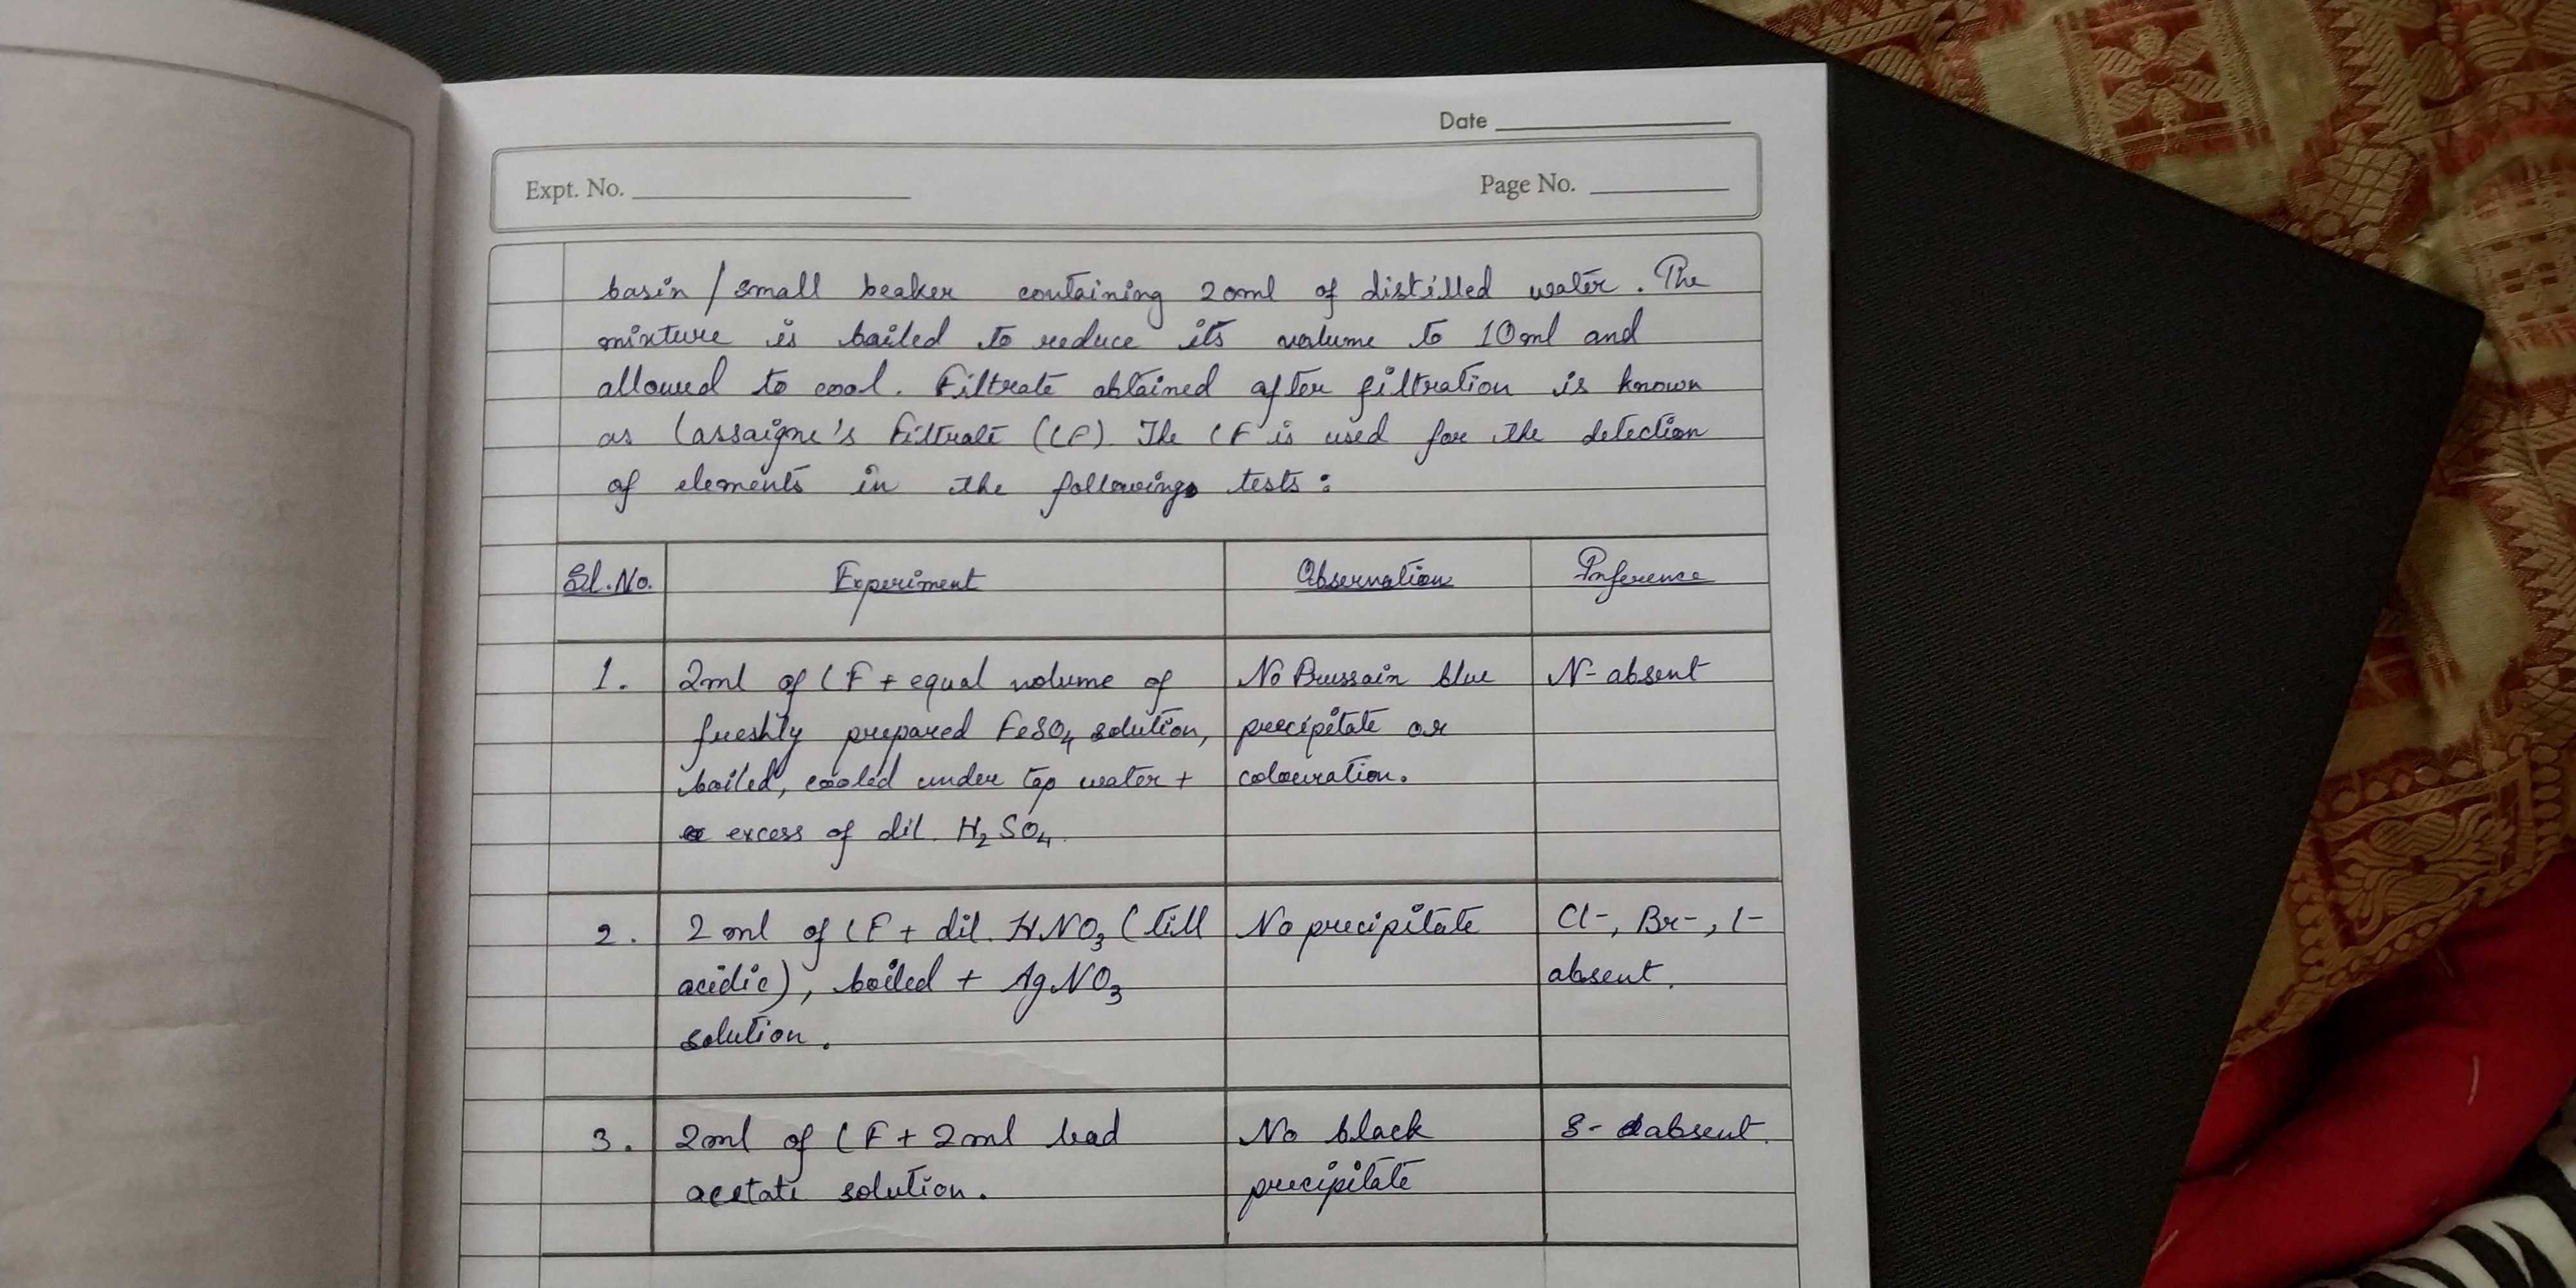 Date
Expt. No.
Page No.
basin / small beaker containing 20ml of distilled water. The
mixture is boiled to reduce its volume to 10ml and
allowed to cool. Filtrate obtained after filtration is known
as Lassaigne's Filtrate (LF). The LF is used for the detection
of elements in the following tests :
Sl. No. Experiment Observation Inference
1. 2ml of LF + equal volume of No Prussain blue N- absent
freshly prepared FeSO4 solution, precipitate or
boiled, cooled under tap water + colouration.
excess of dil. H2SO4.
2. 2 ml of LF + dil. HNO3 (till No precipitate Cl-, Br-, I-
acidic), boiled + AgNO3 absent.
solution.
3. 2ml of LF + 2ml lead No black S- absent.
acetate solution. precipitate